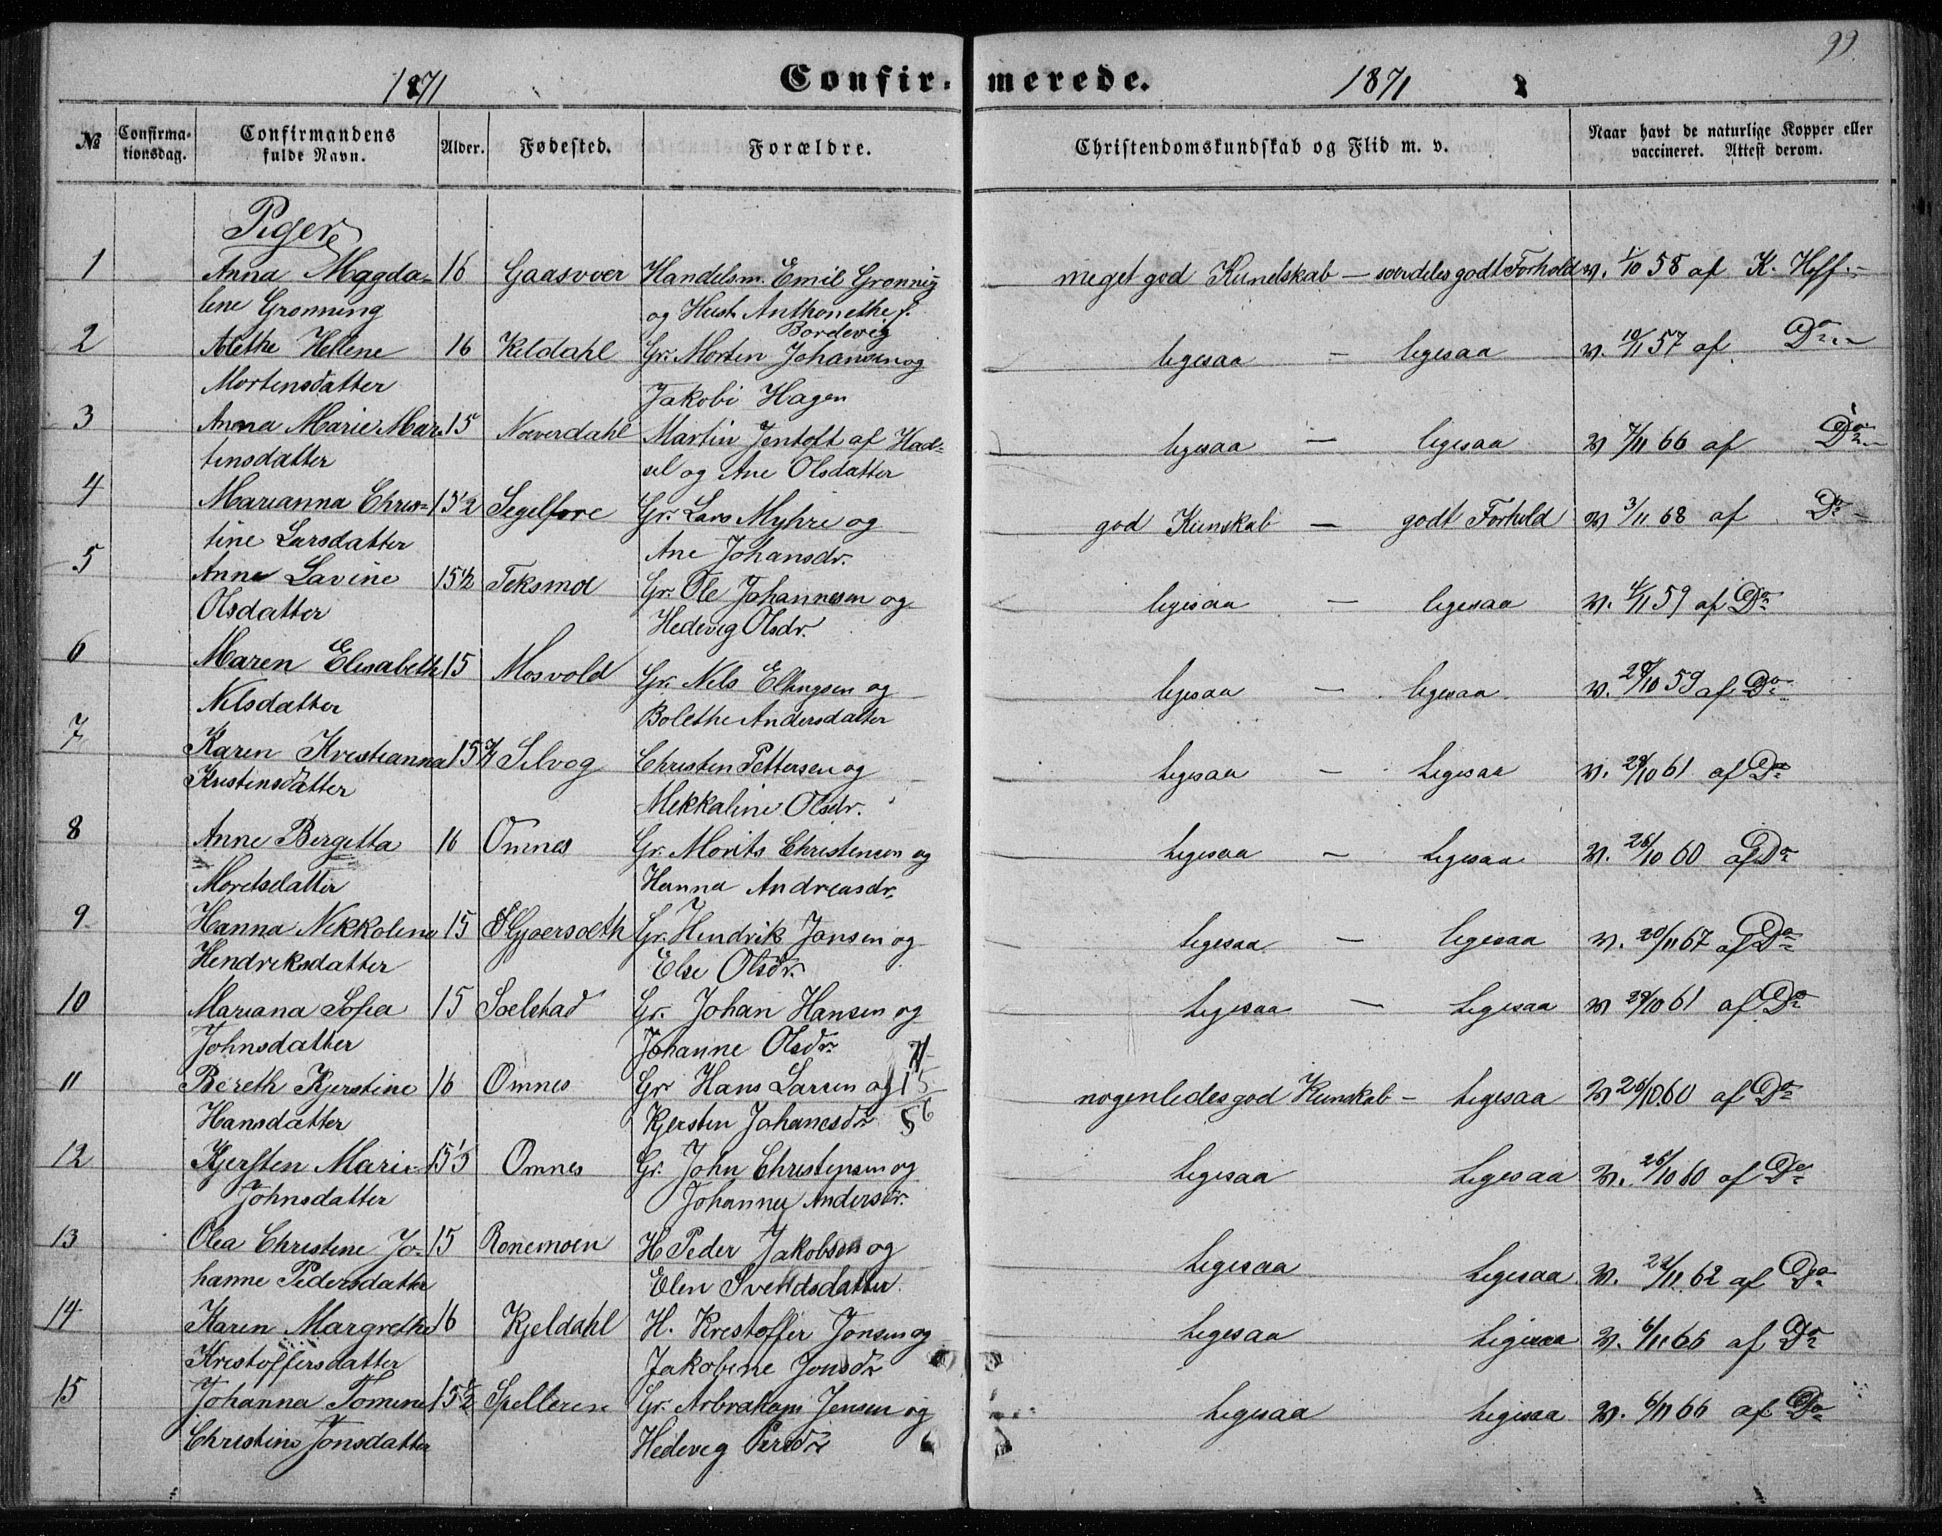 99.
1871 Confirmerede. 1871
№ Confirmationsdag. Confirmandens fulde Navn. Alder. Fødested. Forældre. Christendomskundskab og Flid m. v. Naar havt de naturlige Kopper eller vaccineret. Attest derom.
Piger
1 Anna Magda- 16 Gaasvær Handelsm. Emil Grønnig meget god Kundskab — særdeles godt Forhold v. 1/10 58 af K. Hoff
lene Grønning og Hust Anthonethe f.
Bordevig
2 Alethe Helene 16 Keldahl Gr. Morten Johansen og ligesaa — ligesaa v. 10/11 57 af Do
Mortensdatter Jakobi Hagen
3 Anna Marie Mar- 15 Næverdahl Martin Jentoft af Had- ligesaa — ligesaa v 7/11 66 af Do
tinsdatter sel og Ane Olsdatter
4 Marianna Chris- 15½ Segelfore Gr. Lars Myhre og god Kunskab — godt Forhold v 3/11 68 af Do
tine Larsdatter Ane Johansdr.
5 Anne Lavine 15½ Teksmo Gr. Ole Johannesen og ligesaa — ligesaa v. 4/11 59 af Do
Olsdatter Hedevig Olsdr.
6 Maren Elisabeth 15 Mosvold Gr. Nils Ellingsen og ligesaa — ligesaa v. 29/10 59 af Do
Nilsdatter Bolethe Andersdatter
7 Karen Kristianna 15¾ Selvog Christen Pettersen og ligesaa — ligesaa v. 28/10 61 af Do
Kristensdatter Mekkaline Olsdr.
8 Anne Bergetta 16 Omnes Gr. Morits Christensen og ligesaa — ligesaa v. 26/10 60 af Do
Moretsdatter Hanna Andreasdr.
9 Hanna Nekkoline 15 Gjærsæth Gr. Hendrik Jonsen og ligesaa — ligesaa v. 20/11 67 af Do
Hendreksdatter Else Olsdr.
10 Mariana Sofia 15 Selstad Gr. Johan Hansen og ligesaa — ligesaa v 28/10 61 af Do
Johnsdatter Johanne Olsdr.
11 Bereth Kjerstine 16 Omnes Gr Hans Larsen og nogenledes god Kunskab — ligesaa v 26/10 60 af Do
Hansdatter Kjersten Johanesdr
12 Kjersten Marie 15½ Omnes Gr. John Christensen og ligesaa ligesaa v. 26/10 60 af Do
Johnsdatter Johanna Andersdr.
13 Olea Christine Jo- 15 Ronemoen H Peder Jakobsen og ligesaa ligesaa v. 22/11 62 af Do
hanne Pedersdatter Elen Svendsdatter.
14 Karen Margrethe 16 Kjeldahl H. Krestoffer Jonsen og ligesaa ligesaa v. 6/11 66 af Do
Kristoffersdatter Jakobine Jonsdr
15 Johanna Tomine 15½ Spelleren Gr. Arbraham Jensen og ligesaa ligesaa v. 6/11 66 af Do
Christine Jonsdatter Hedeveg Persdr